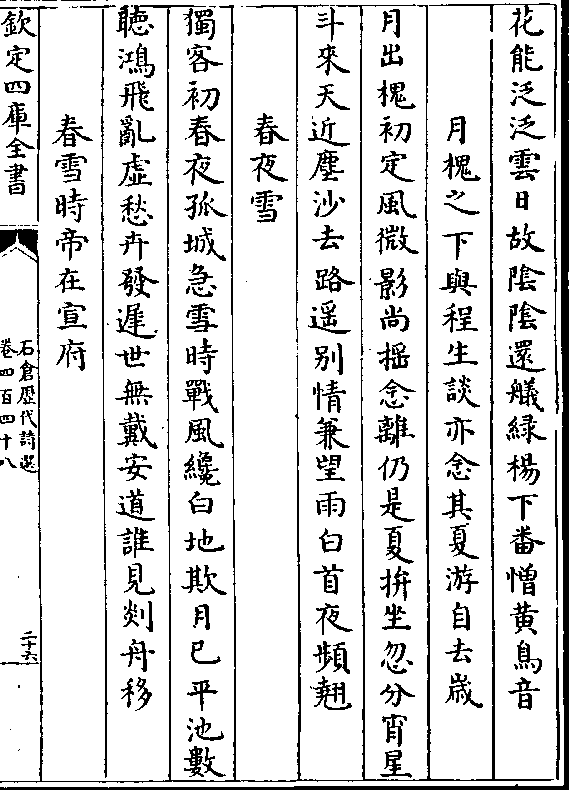 花能泛泛雲日故陰陰還艤緑楊下番憎黄鳥音
月槐之下與程生談亦念其夏游自去嵗
月出槐初定風微影尚揺念離仍是夏拚坐忽分宵星
斗來天近塵沙去路遥别情兼望雨白首夜頻翹
春夜雪
獨客初春夜孤城急雪時戰風纔白地欺月已平池數
聴鴻飛亂虚愁卉發遲世無戴安道誰見剡舟移
春雪時帝在宣府
欽定四庫全書
石倉歴代詩選
卷四百四十八
二十六